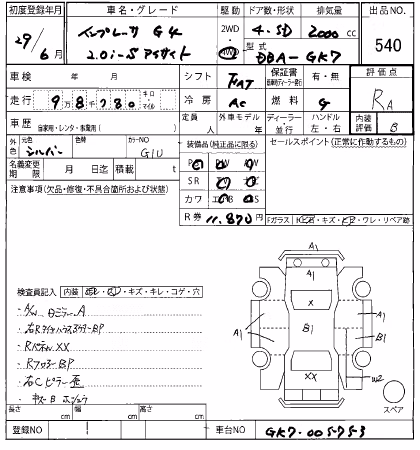 初度登録年月 車名・グレード 駆動 ドア数・形状 排気量 出品NO.
29/6月 インプレッサ G4 2WD 4.5D 2000cc 540
2.0i-S アイサイト 4WD 型式 DBA-GK7
車検 年 月 シフト FAT 保証書 有・無 評価点
走行 9万8千780 キロ マイル 冷房 AC 燃料 g RA
車歴 自家用・レンタ・事業用( ) 定員 人 外車モデル 年 ディーラー・並行 ハンドル 左・右 内装評価 B
外色 元色 シルバー 色替 カラーNO G1U 装備品(純正品に限る) セールスポイント(正常に作動するもの)
名義変更期限 月 日迄 積載 t
PS PW
SR TV
カワ エアB
注意事項(欠品・修復・不具合箇所および状態)
R券 11,870円
Fガラス
キズ・ワレ・リペア跡
検査員記入 内装 キズ・キレ・コゲ・穴
ドミラーA
RパネルXX
RフロアーBP
右Cピラー歪
A1
A1
X
A1 B1 A1
B1
XX
W2
A1
スペア
長さ cm 幅 cm 高さ cm
登録NO 車台NO GK7-005753